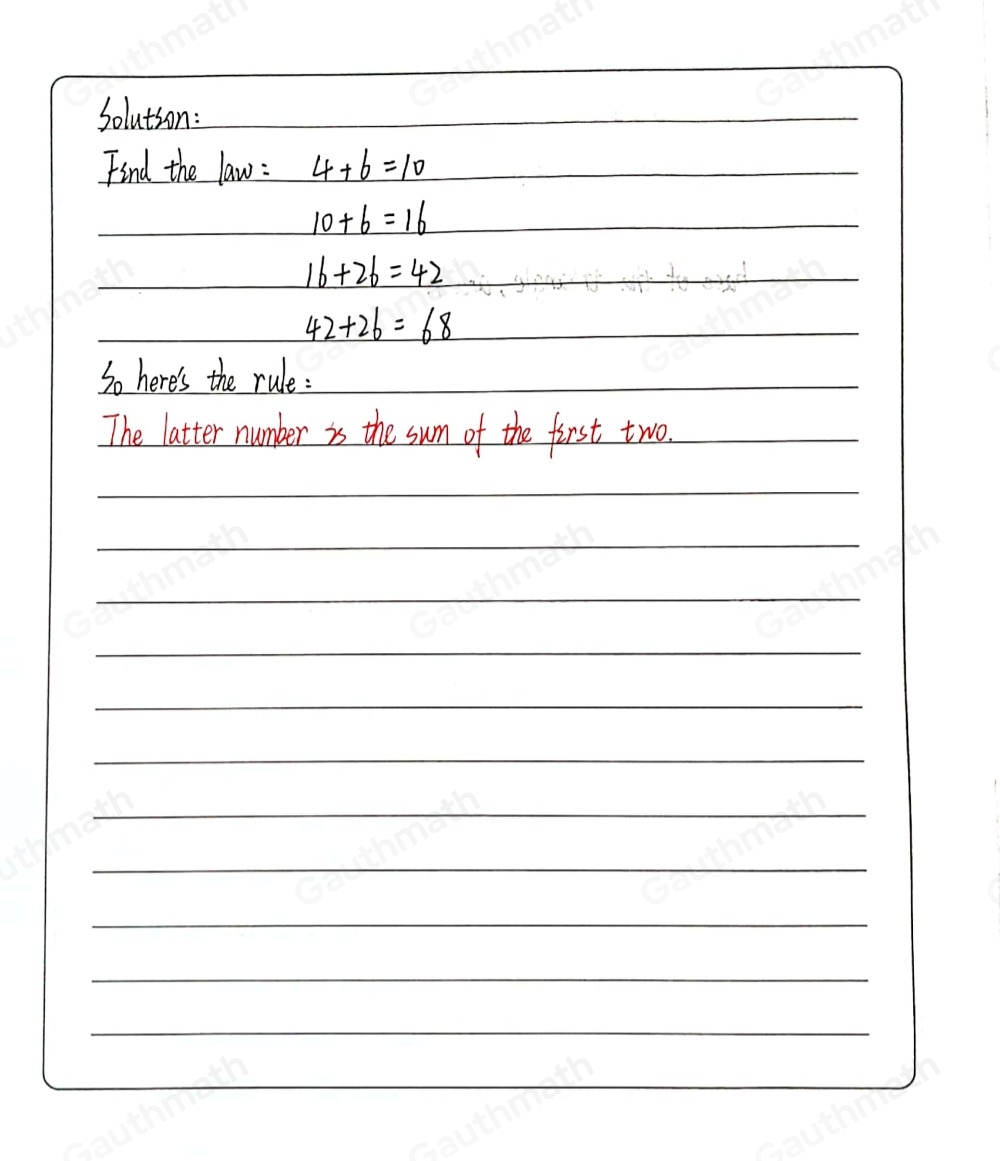 Solution:
Find the law: 4+6=10
10+6=16
16+26=42
42+26=68
So here's the rule:
The latter number is the sum of the first two.
Gauthmath